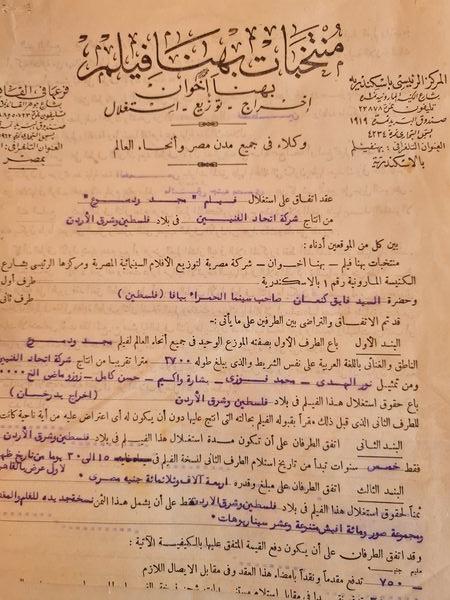 منتخبات بهنا فيلم
بهنا أخوان
اخراج - توزيع - استغلال
وكلاء في جميع مدن مصر وأنحاء العالم
المركز الرئيسى باسكندرية
بشارع الكنيسة المارونية نمرة ١
تليفون نمرة ٢٣٨٧٥
صندوق البريد نمرة ١٩١٩
سجل تجارى نمرة ٤٢٣٤
العنوان التلغرافى: بهنفيلم
بالاسكندرية
صندوق البريد نمرة
العنوان التلغرافى:
بمصر
عقد اتفاق على استغلال فيلم " مجد ودموع "
من انتاج شركة اتحاد الفنيين فى بلاد فلسطين وشرق الأردن
بين كل من الموقعين أدناه :
منتخبات بهنا فيلم - بهنا أخوان - شركة مصرية لتوزيع الأفلام السينمائية المصرية ومركزها الرئيسى بشارع
الكنيسة المارونية رقم ١ بالاسكندرية طرف أول
وحضرة السيد فايق كنعان صاحب سينما الحمراء بيافا (فلسطين) طرف ثانى
قد تم الاتفاق والتراضى بين الطرفين على ما يأتى :-
البند الأول باع الطرف الأول بصفته الموزع الوحيد فى جميع أنحاء العالم لفيلم مجد ودموع
الناطق والغنائى باللغة العربية على نفس الشريط والذى يبلغ طوله ٢٧٠٠ مترا تقريبا من انتاج شركة اتحاد الفنيين
ومن تمثيل نور الهدى - محمد فوزى - بشارة واكيم - حسن كامل - زوزو ماضى الخ
باع حقوق استغلال هذا الفيلم فى بلاد فلسطين وشرق الأردن (اخراج بدرخان)
للطرف الثانى الذى قبل ذلك مقراً بقبوله الفيلم بحالته التى انتج عليها دون أن يكون له أى اعتراض عليه من أية ناحية كانت
البند الثانى اتفق الطرفان على أن تكون مدة استغلال هذا الفيلم فى بلاد فلسطين وشرق الأردن
فقط خمس سنوات تبدأ من تاريخ استلام الطرف الثانى لنسخة الفيلم ١٥ الى ٣٠ يوما من تاريخ
لاول عرض بالقاهرة
البند الثالث اتفق الطرفان على مبلغ وقدره اربعة آلاف وثلاثمائة جنيه مصرى
ثمناً لحقوق استغلال هذا الفيلم فى بلاد فلسطين وشرق الأردن فقط على أن يشمل هذا الثمن نسخة جديدة للفيلم
ومجموعة صور ومائة افيش متنوعة وعشر سيناريوهات
وقد اتفق الطرفان على أن يكون دفع القيمة المتفق عليها بالكيفية الآتية :
مليم جنيه
٧٥٠ تدفع مقدماً ونقداً بامضاء هذا العقد وفى مقابل الايصال اللازم